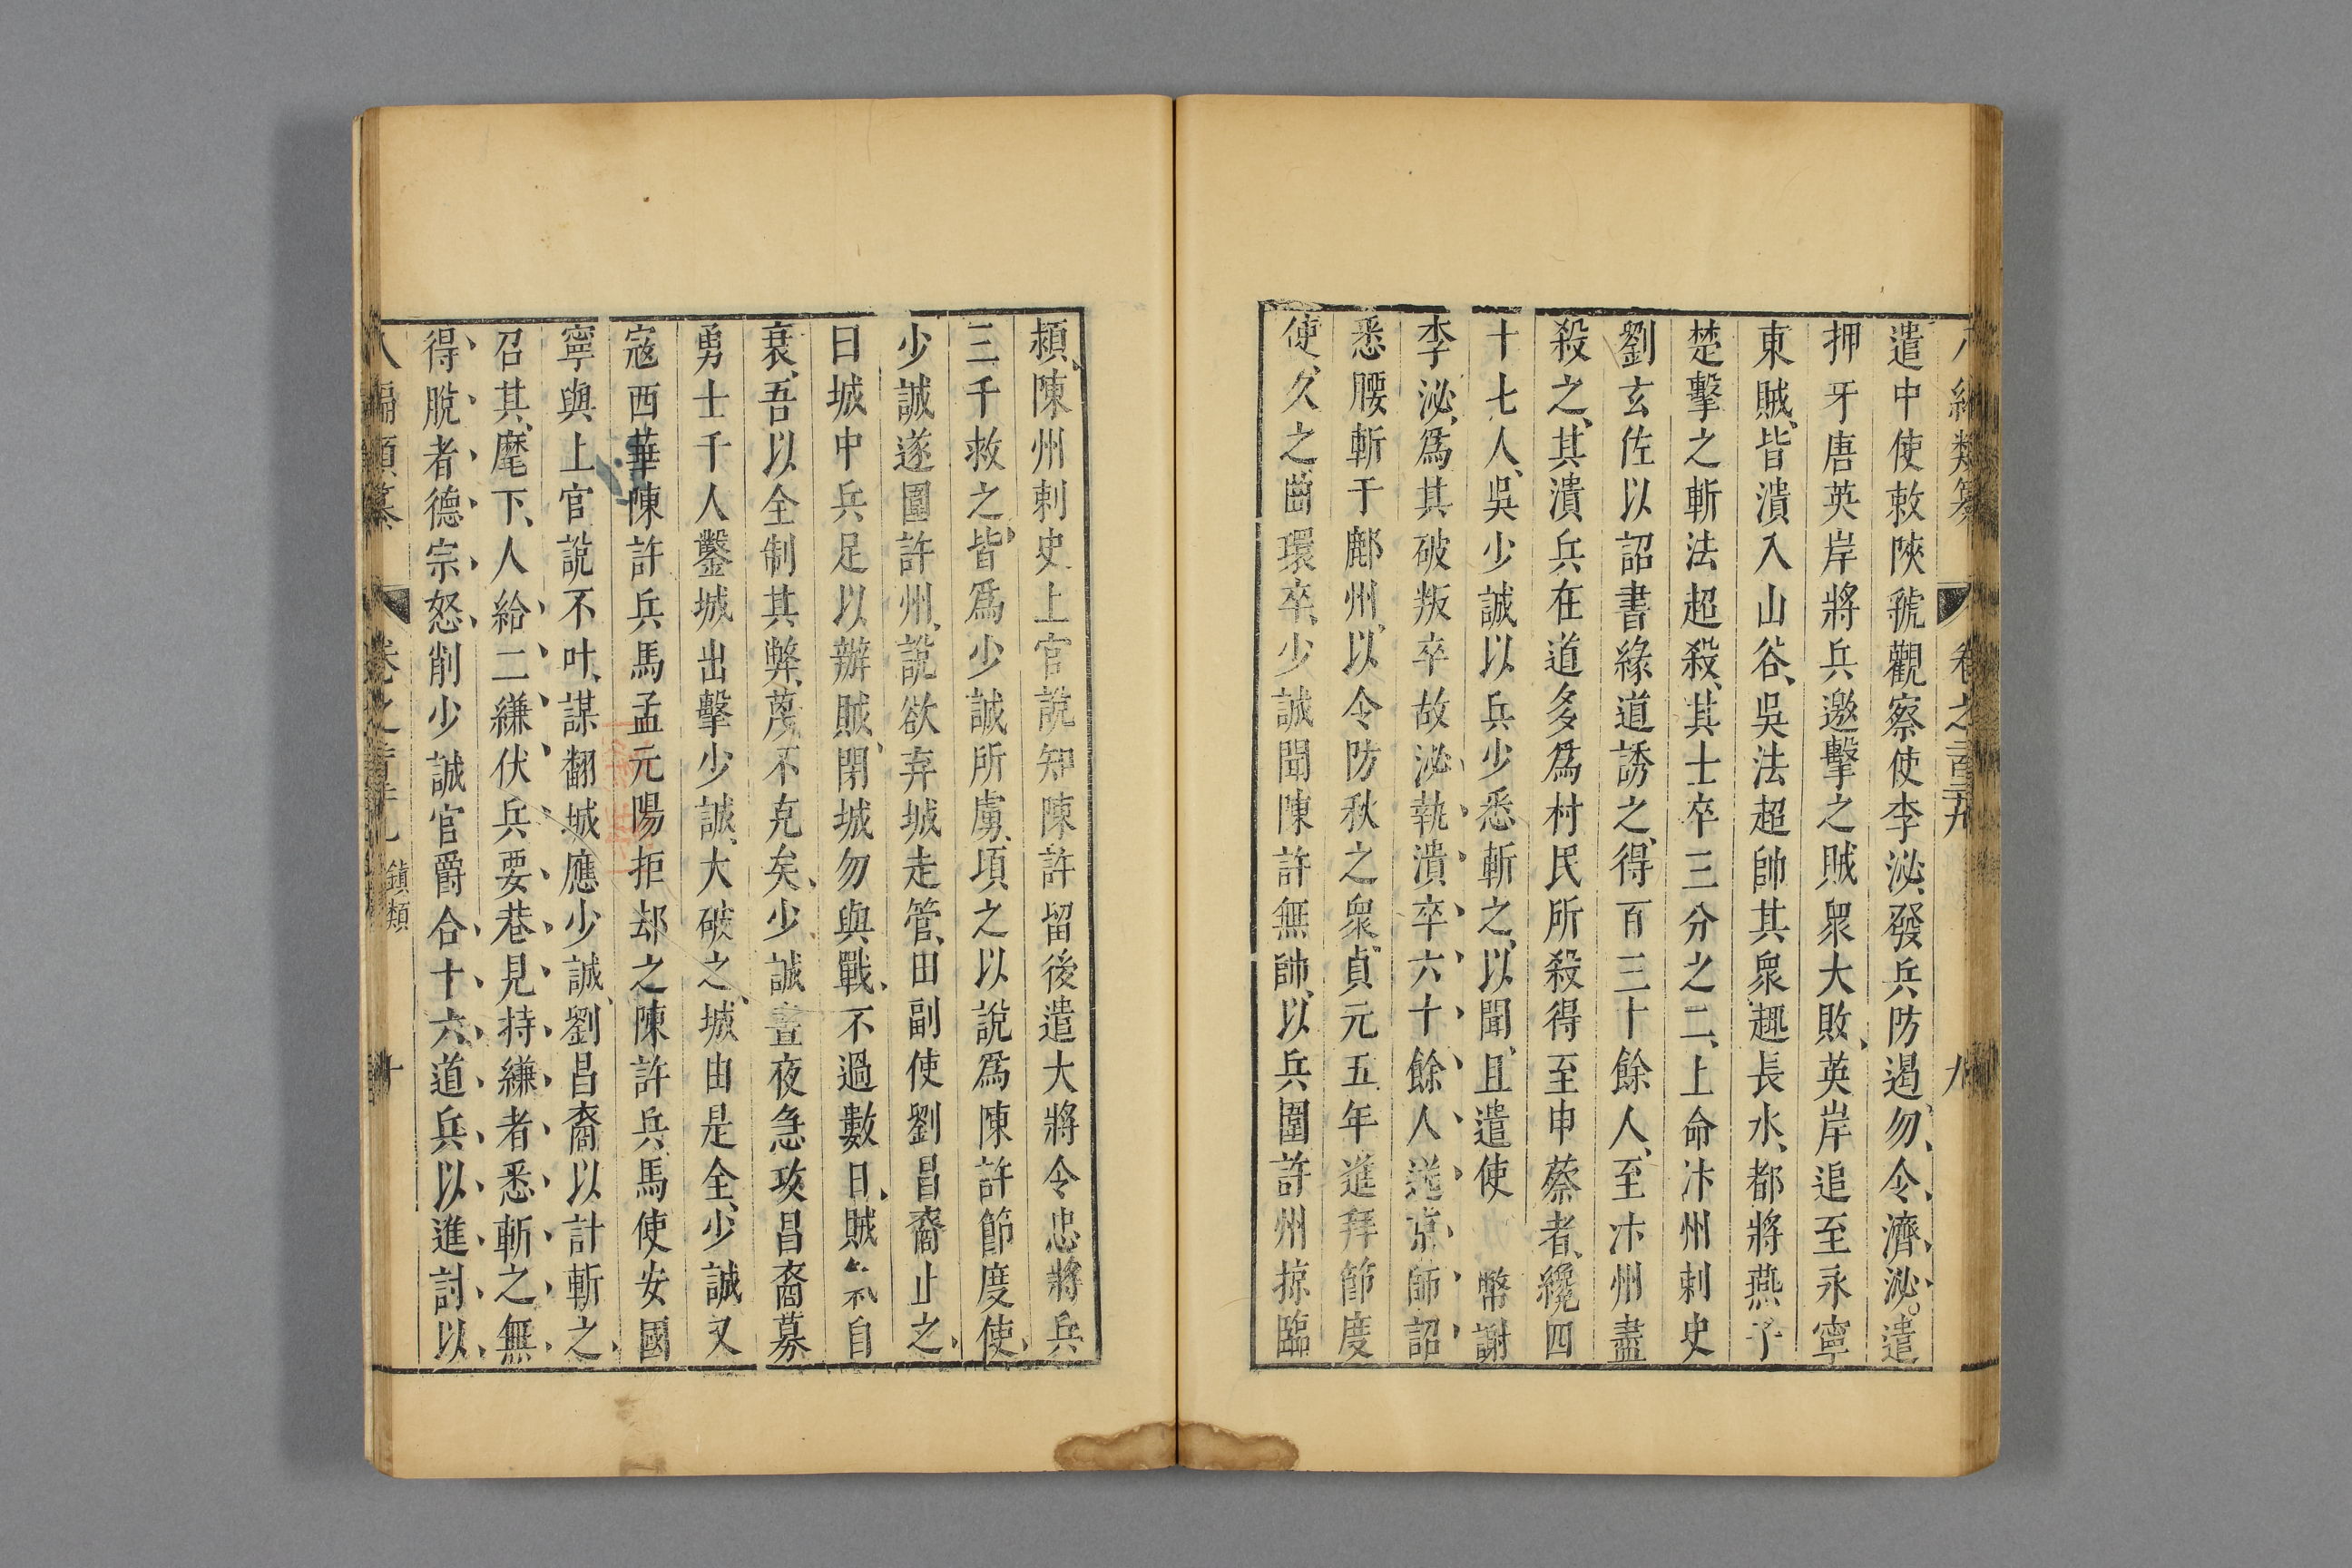 遣中使敕陝虢觀察使李泌發兵防遏勿令濟泌遣
押牙唐英岸將兵邀擊之賊眾大敗英岸追至永寧
東賊皆潰入山谷吳法超帥其眾趣長水都將燕子
楚擊之斬法超殺其士卒三分之二上命汴州刺史
劉玄佐以詔書緣道誘之得百三十餘人至汴州盡
殺之其潰兵在道多為村民所殺得至申蔡者纔四
十七人吳少誠以兵少悉斬之以聞且遣使 幣謝
李泌為其破叛卒故泌執潰卒六十餘人送京師詔
悉腰斬于鄜州以令防秋之衆貞元五年進拜節度
使久之曲環卒少誠聞陳許無帥以兵圍許州掠臨
潁陳州刺史上官說知陳許留後遣大將令忠將兵
三千救之皆為少誠所虜項之以說為陳許節度使
少誠遂圍許州說欲弃城走管田副使劉昌裔止之
曰城中兵足以辦賊閉城勿與戰不過數日賊氣自
衰吾以全制其弊蔑不克矣少誠晝夜急攻昌裔募
勇士千人鑿城出擊少誠大破之城由是全少誠又
寇西華陳許兵馬孟元陽拒却之陳許兵馬使安國
寧與上官說不叶謀翻城應少誠劉昌裔以計斬之
召其麾下人給二縑伏兵要巷見持縑者悉斬之無
得脫者德宗怒削少誠官爵合十六道兵以進討以
八編類纂 卷之 鎮類 十